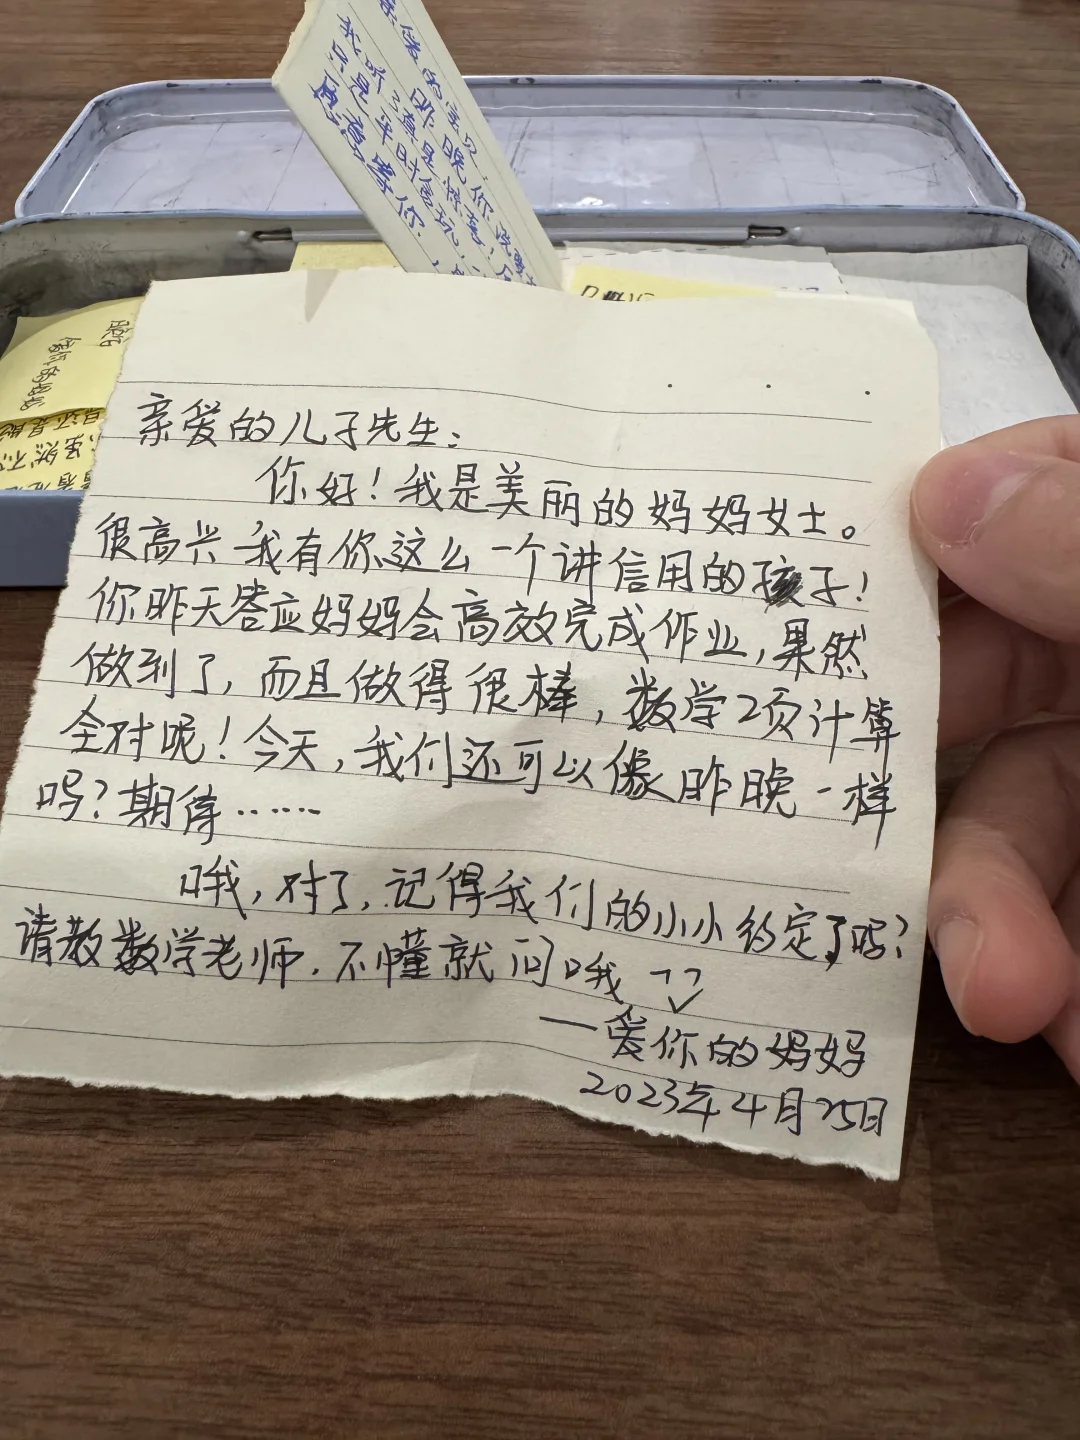 亲爱的宝贝:
昨晚你
我听了真是惊喜!
只是平时贪玩,
亲爱的儿子先生:
你好!我是美丽的妈妈女士。
很高兴我有你这么一个讲信用的孩子!
你昨天答应妈妈会高效完成作业,果然
做到了,而且做得很棒,数学2页计算
全对呢!今天,我们还可以像昨晚一样
吗?期待……
哦,对了,记得我们的小小约定了吗?
请教数学老师,不懂就问哦
—爱你的妈妈
2023年4月25日